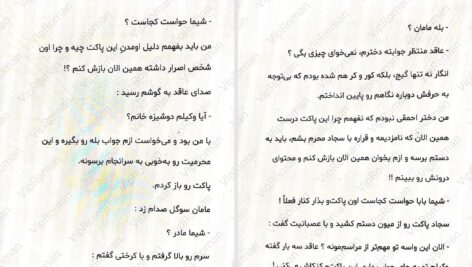 - بله مامان ؟
- عاقد منتظر جوابته دخترم، نمی‌خوای چیزی بگی ؟
انگار نه تنها گیج، بلکه کور و کر هم شده بودم که بی‌توجه
به حرفش دوباره نگاهم رو پایین انداختم.
من دختر احمقی نبودم که نفهمم چرا این پاکت درست
همین الان که نامزدیمه و قراره با سجاد محرم بشم، باید به
دستم برسه و ازم بخوان همین الان بازش کنم و محتوای
درونش رو ببینم !!
- شیما بابا حواست کجاست اون پاکت‌و بذار کنار فعلاً !
سجاد پاکت رو از میون دستم کشید و با عصبانیت گفت :
- الان این واسه تو مهم‌تر از مراسم‌مونه ؟ عاقد سه بار گفته
- شیما حواست کجاست ؟
من باید بفهمم دلیل اومدنِ این پاکت چیه و چرا اون
شخص اصرار داشته همین الان بازش کنم ؟!
صدای عاقد به گوشم رسید :
- آیا وکیلم دوشیزه خانم؟
با من بود و می‌خواست ازم جواب بله رو بگیره و این
محرمیت رو به‌خوبی به سرانجام برسونه.
پاکت رو باز کردم.
مامان سوگل صدام زد :
- شیما مادر ؟
سرم رو بالا گرفتم و با کرختی گفتم :
VipRoman